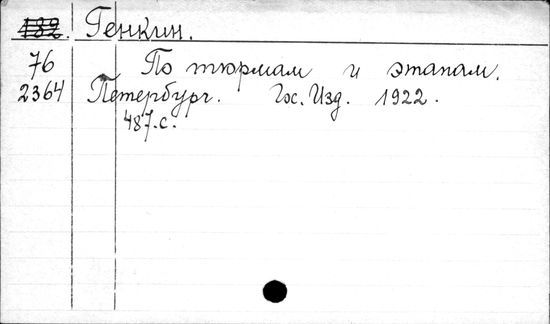 132. Генкин.
76 По тюрмам и этапам.
2364 Петербург. Гос. Изд. 1922.
487.с.